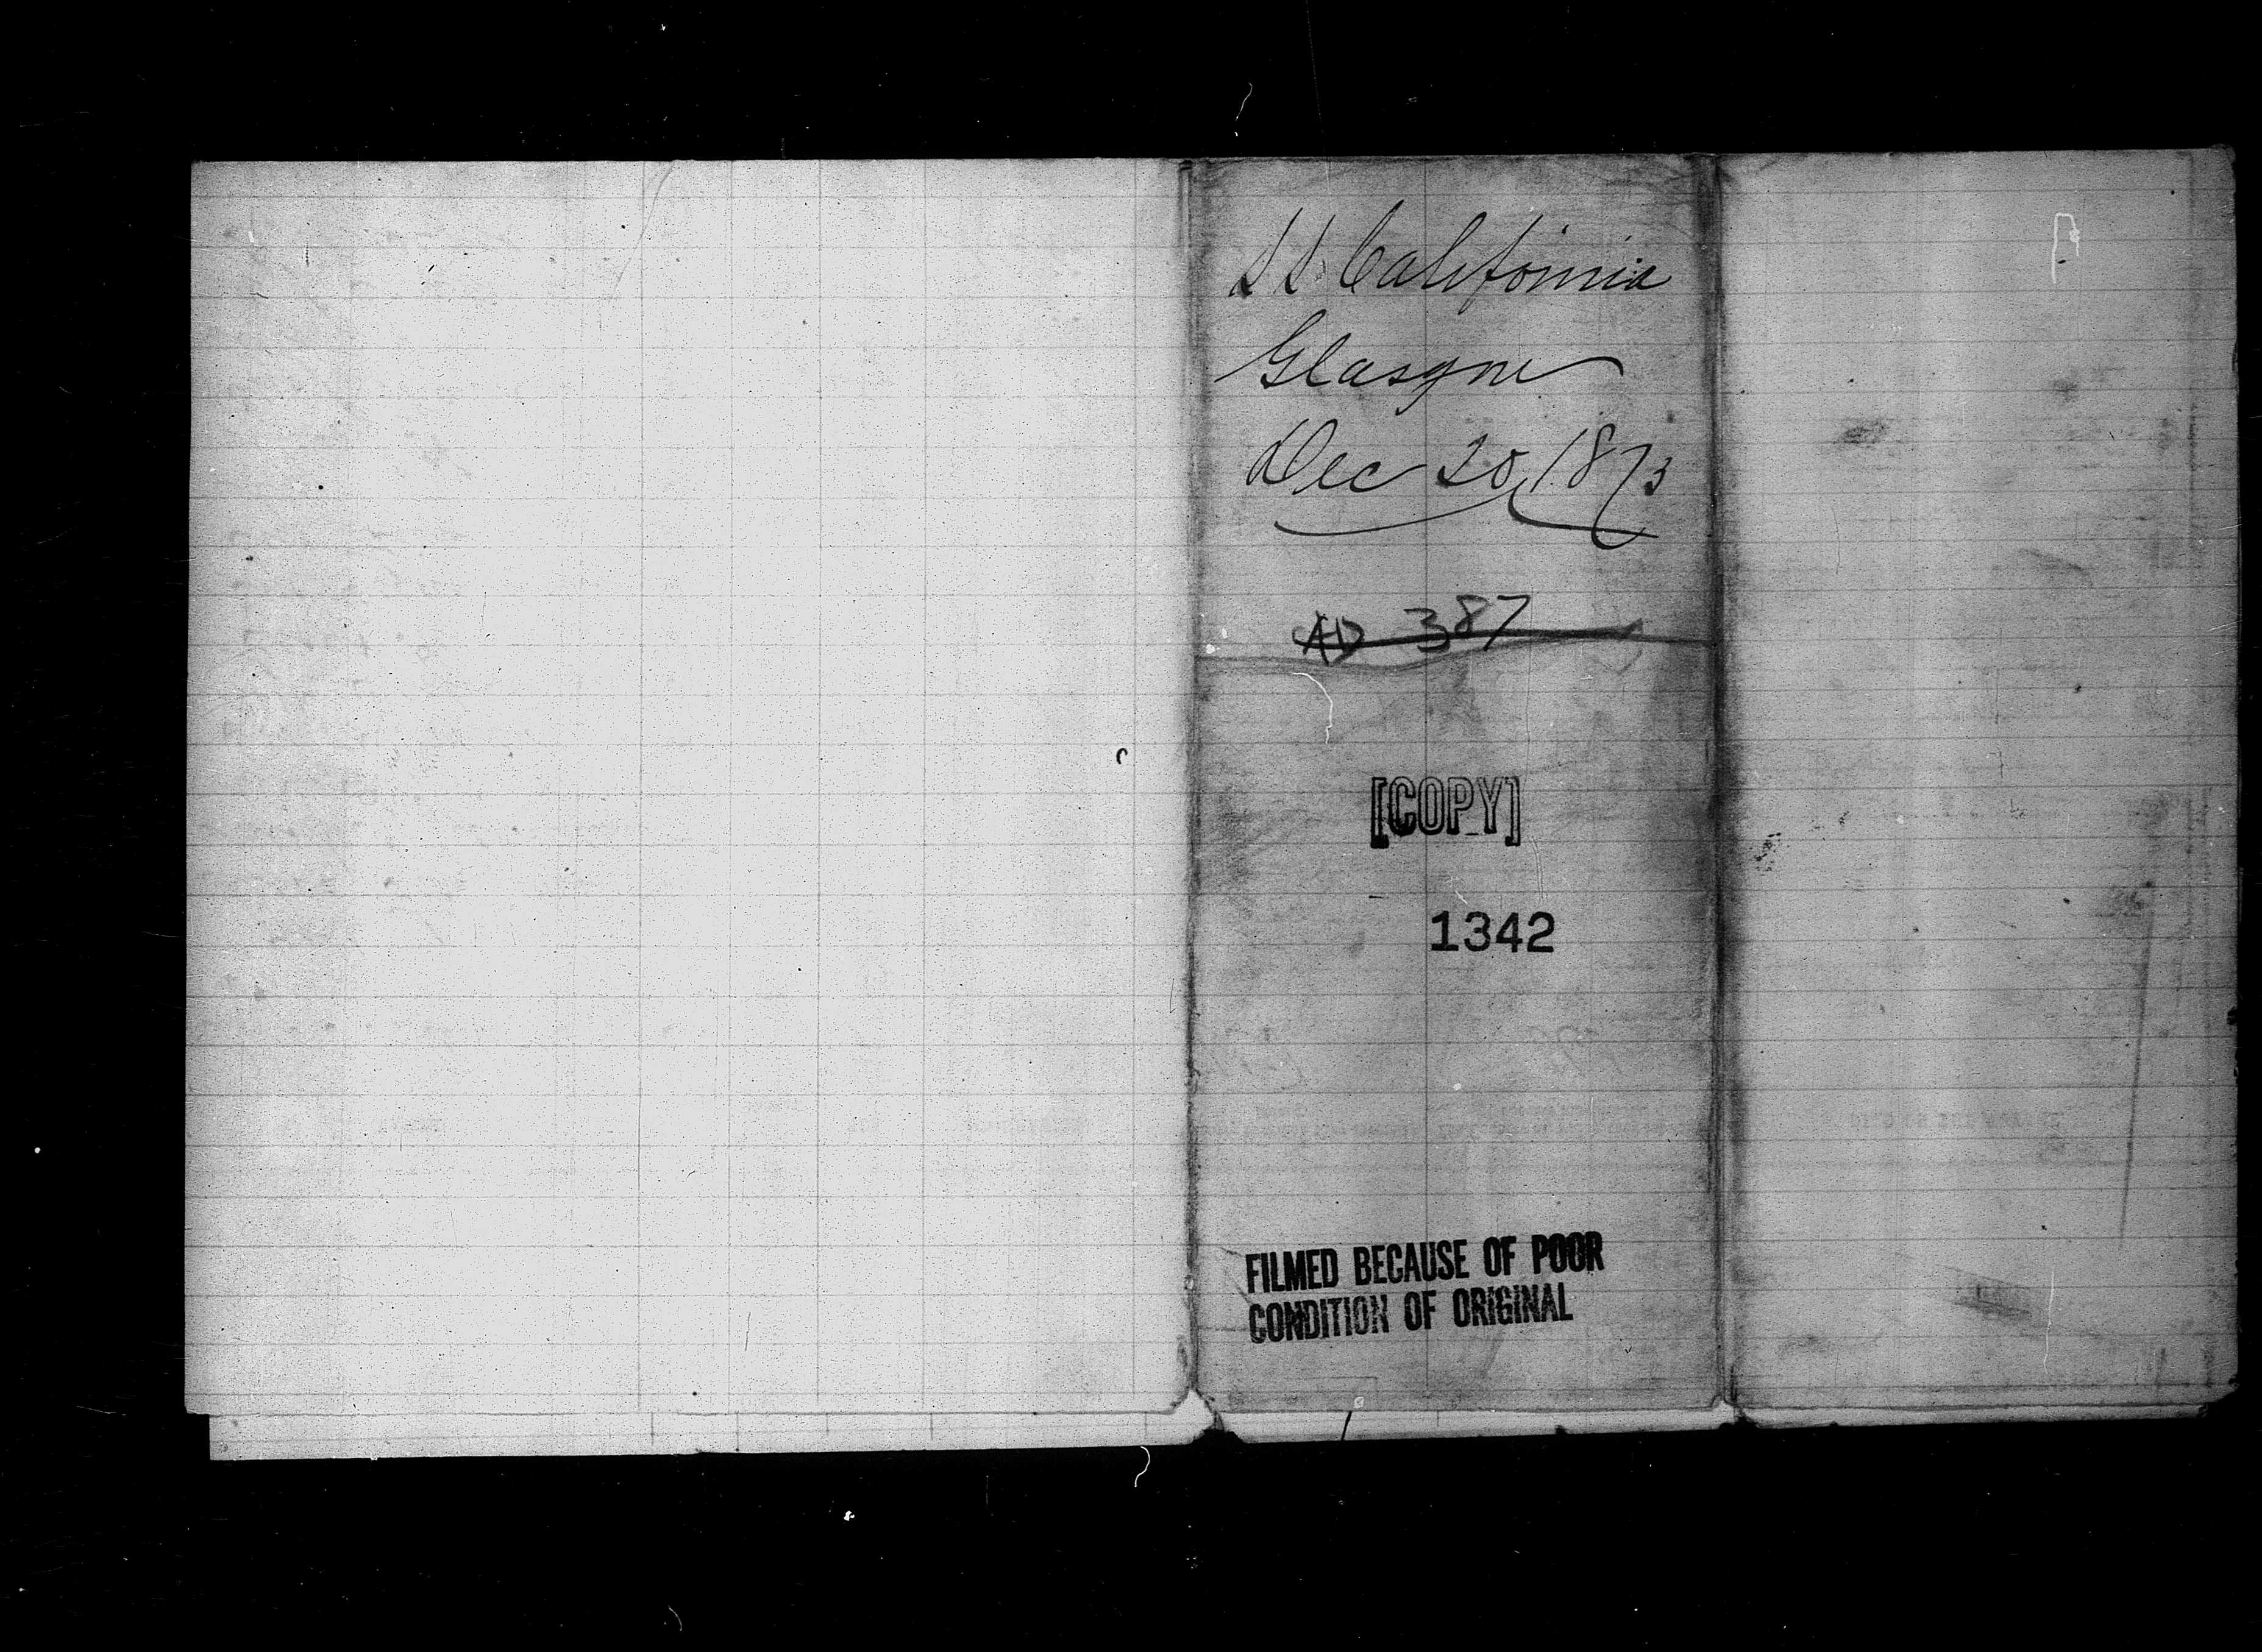 SS California
Glasgow
Dec 20, 1873
AD 387
[COPY]
1342
FILMED BECAUSE OF POOR
CONDITION OF ORIGINAL